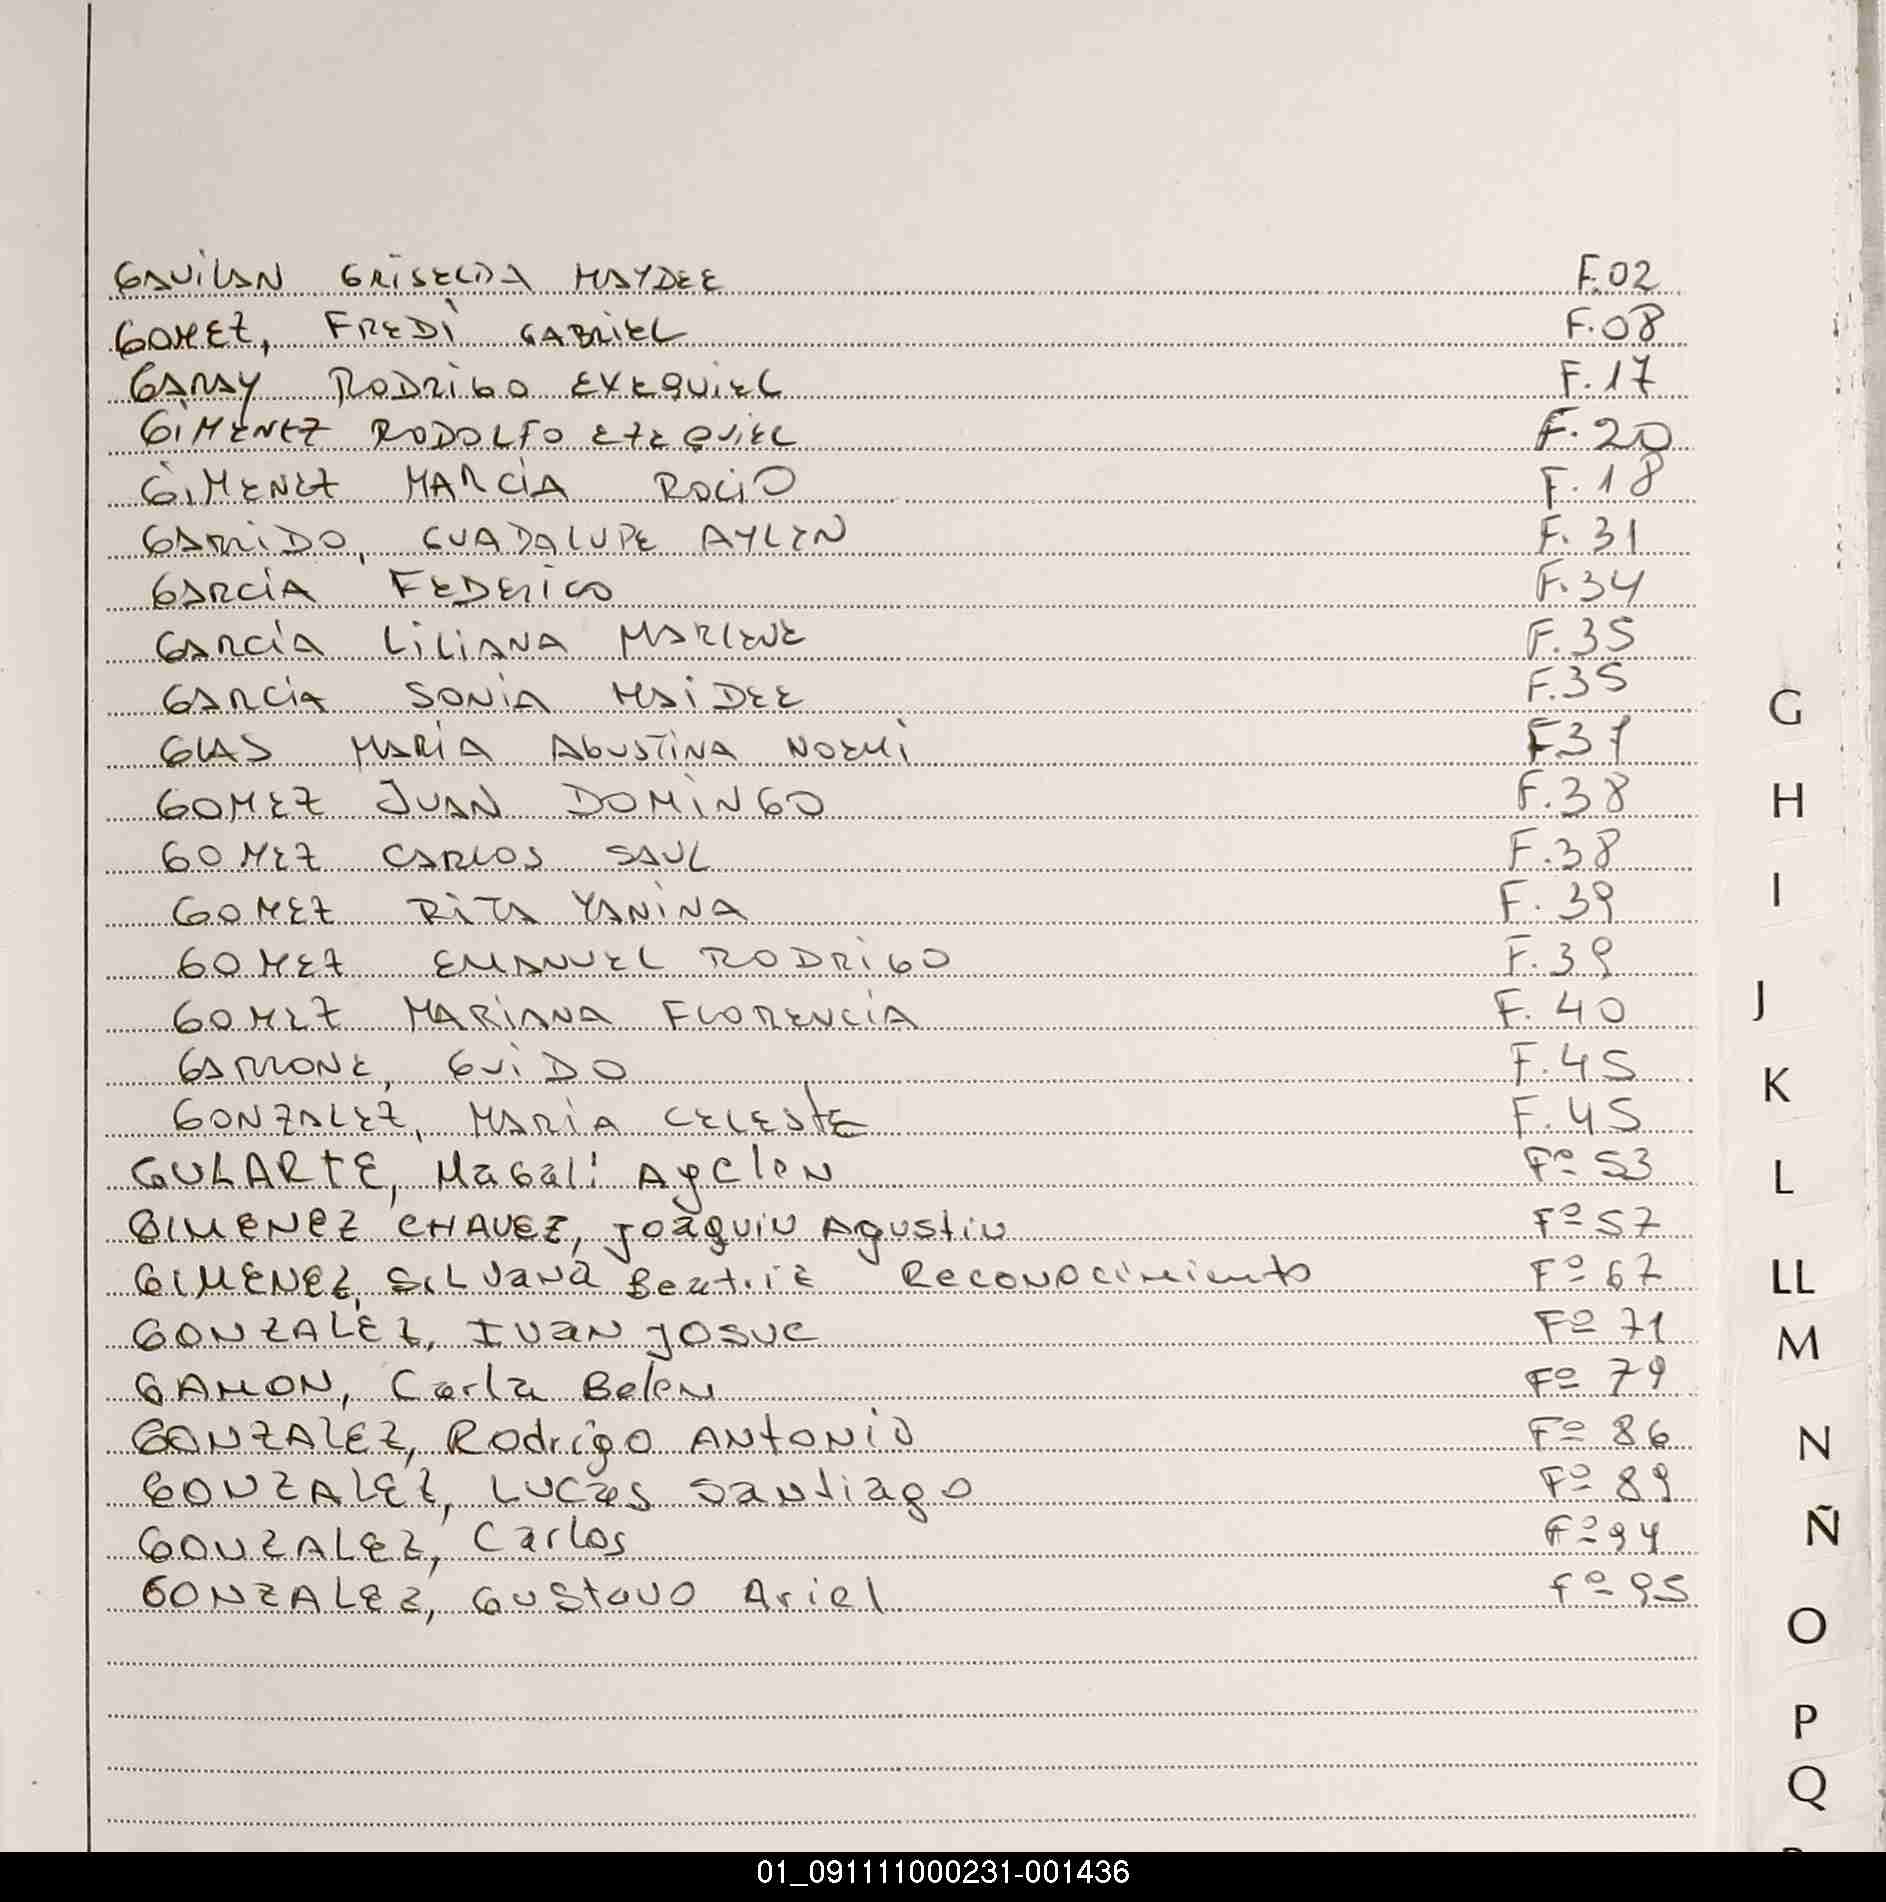 GAVILAN GRISELDA HAYDEE F.02
GOMEZ, FREDI GABRIEL F.08
GARAY RODRIGO EXEQUIEL F.17
GIMENEZ RODOLFO EZEQUIEL F.20
GIMENEZ MARCIA ROCIO F.18
GARRIDO, GUADALUPE AYLEN F.31
GARCIA FEDERICO F.34
GARCIA LILIANA MARLENE F.35
GARCIA SONIA HAIDEE F.35
GLAS MARIA AGUSTINA NOEMI F37
GOMEZ JUAN DOMINGO F.38
GOMEZ CARLOS SAUL F.38
GOMEZ RITA YANINA F.39
GOMEZ EMANUEL RODRIGO F.39
GOMEZ MARIANA FLORENCIA F.40
GARRONE, GUIDO F.45
GONZALEZ, MARIA CELESTE F.45
GULARTE, Magali Ayelen Fº 53
GIMENEZ CHAVEZ, Joaquin Agustin Fº 57
GIMENEZ, SILVana Beatriz Reconocimiento Fº 67
GONZALEZ, Ivan Josue Fº 71
GAMON, Carla Belen Fº 79
GONZALEZ, Rodrigo ANTONIO Fº 86
GONZALEZ, Lucas Santiago Fº 89
GONZALEZ, Carlos Fº 94
GONZALEZ, Gustavo Ariel Fº 95
G
H
I
J
K
L
LL
M
N
Ñ
O
P
Q
01_091111000231-001436